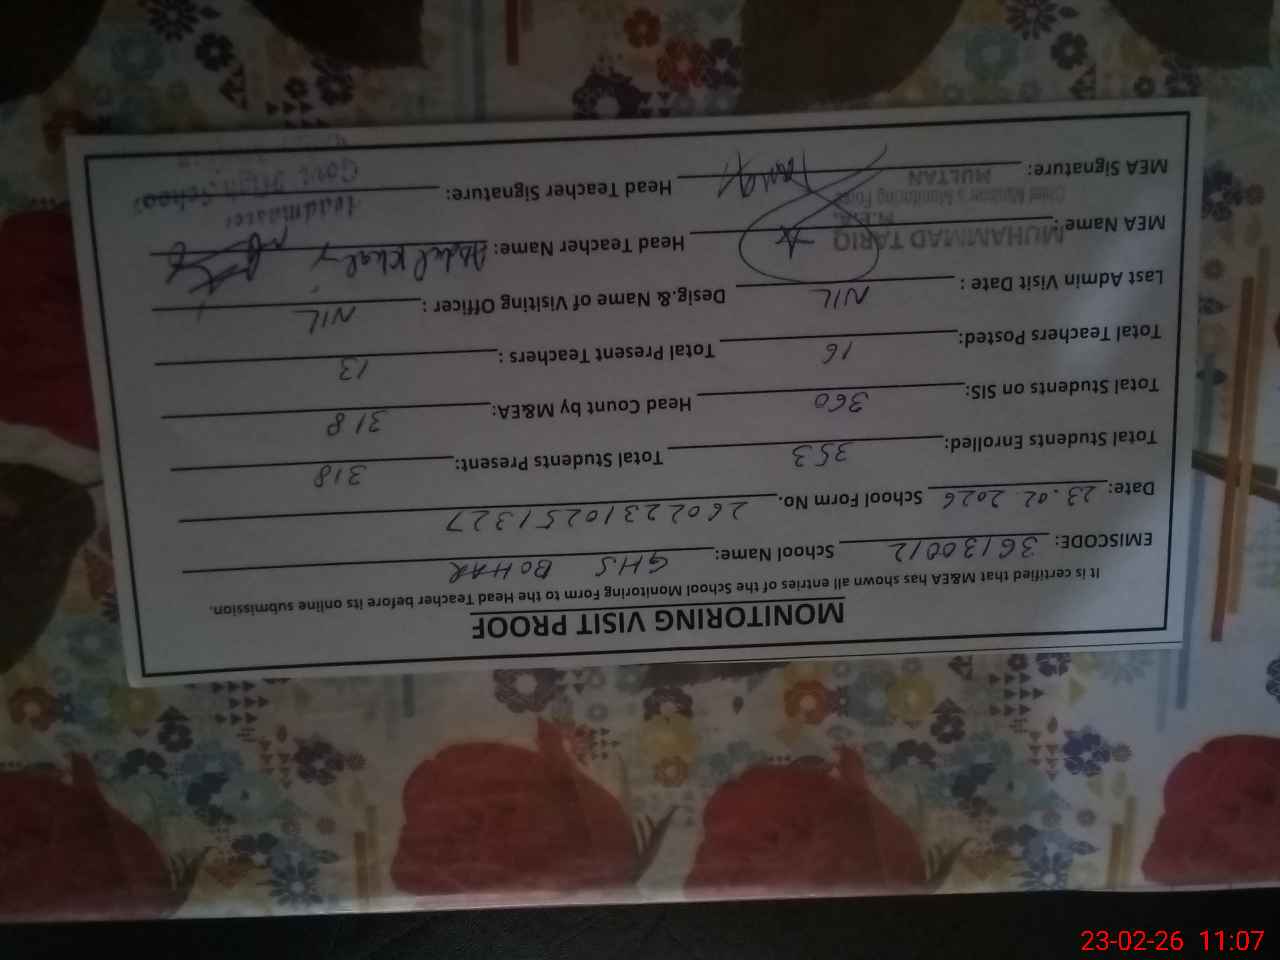 MONITORING VISIT PROOF
It is certified that M&EA has shown all entries of the School Monitoring Form to the Head Teacher before its online submission.
EMISCODE: 36130012 School Name: GHS BOHAR
Date: 23.02.2026 School Form No. 26022310251327
Total Students Enrolled: 353 Total Students Present: 318
Total Students on SIS: 360 Head Count by M&EA: 318
Total Teachers Posted: 16 Total Present Teachers : 13
Last Admin Visit Date : NIL Desig.& Name of Visiting Officer : NIL
MEA Name : MUHAMMAD TARIQ Head Teacher Name: Abdul
M.E.A.
Chief Minister's Monitoring Force
MULTAN
MEA Signature: Tariq Head Teacher Signature:
Headmaster
Govt. High School
23-02-26 11:07